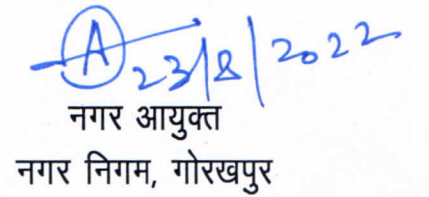 A 23/8/2022
नगर आयुक्त
नगर निगम, गोरखपुर